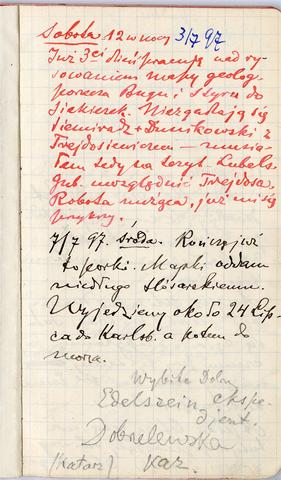 Sobota 12 w nocy 3/7 97
Już 3ci dzień pracuję nad ry-
sowaniem mapy geolog.
porzecza Bugu i Styru do
Siekierek. Niezgadzają się
Siemiradz + Dunikowski z
Trejdosiewiczem — musia-
łem tedy na teryt. Lubels.
gub. uwzględnić Trejdosa.
Robota nużąca, już mi się
przykrzy.
7/7 97. Środa. Kończę już
Mapki oddam
niedługo Ślósarskiemu.
Wyjedziemy około 24 Lip-
ca do Karlsb. a potem do
morza.
Wybita
Edelszein ekspe-
djent.
Dobrolewska
(Katarz) Kaz.